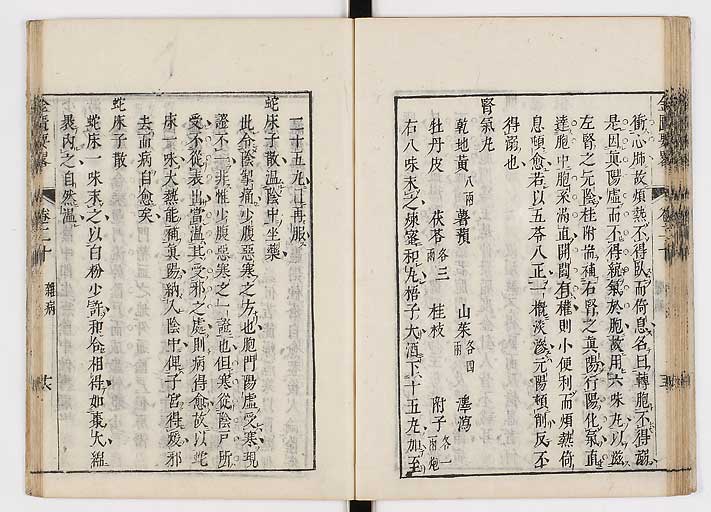 衝心肺故煩熱不得臥而倚息名曰轉胞不得溺
是因眞陽虛而不得統氣於胞故用六味丸以滋
左腎之元陰桂附湍補右腎之眞陽行陽化氣直
達胞中胞系渦直開闔有權則小便利而煩熱倚
息頓愈若以五苓八正一概淡滲元陽頓削反不
得溺也
腎氣丸
乾地黄八兩 薯蕷 山茱各四兩 澤瀉
牡丹皮 茯苓各三兩 桂枝 附子各一兩炮
右八味末之煉蜜和丸梧子大酒下十五丸加至
二十五丸日再服
蛇床子散溫陰中坐藥
此令陰掣痛少腹惡寒之方也胞門陽虛受寒現
證不一非惟少腹惡寒之一證也但寒從陰戸所
受不從表出當溫其受邪之處則病得愈故以蛇
床一味大熱能補眞陽納入陰中俾子宮得煖邪
去而病自愈矣
蛇床子散
蛇床一味末之以白粉少許和合相得如棗大綿
裹內之自然溫
金匱要畧
卷二十
雜病